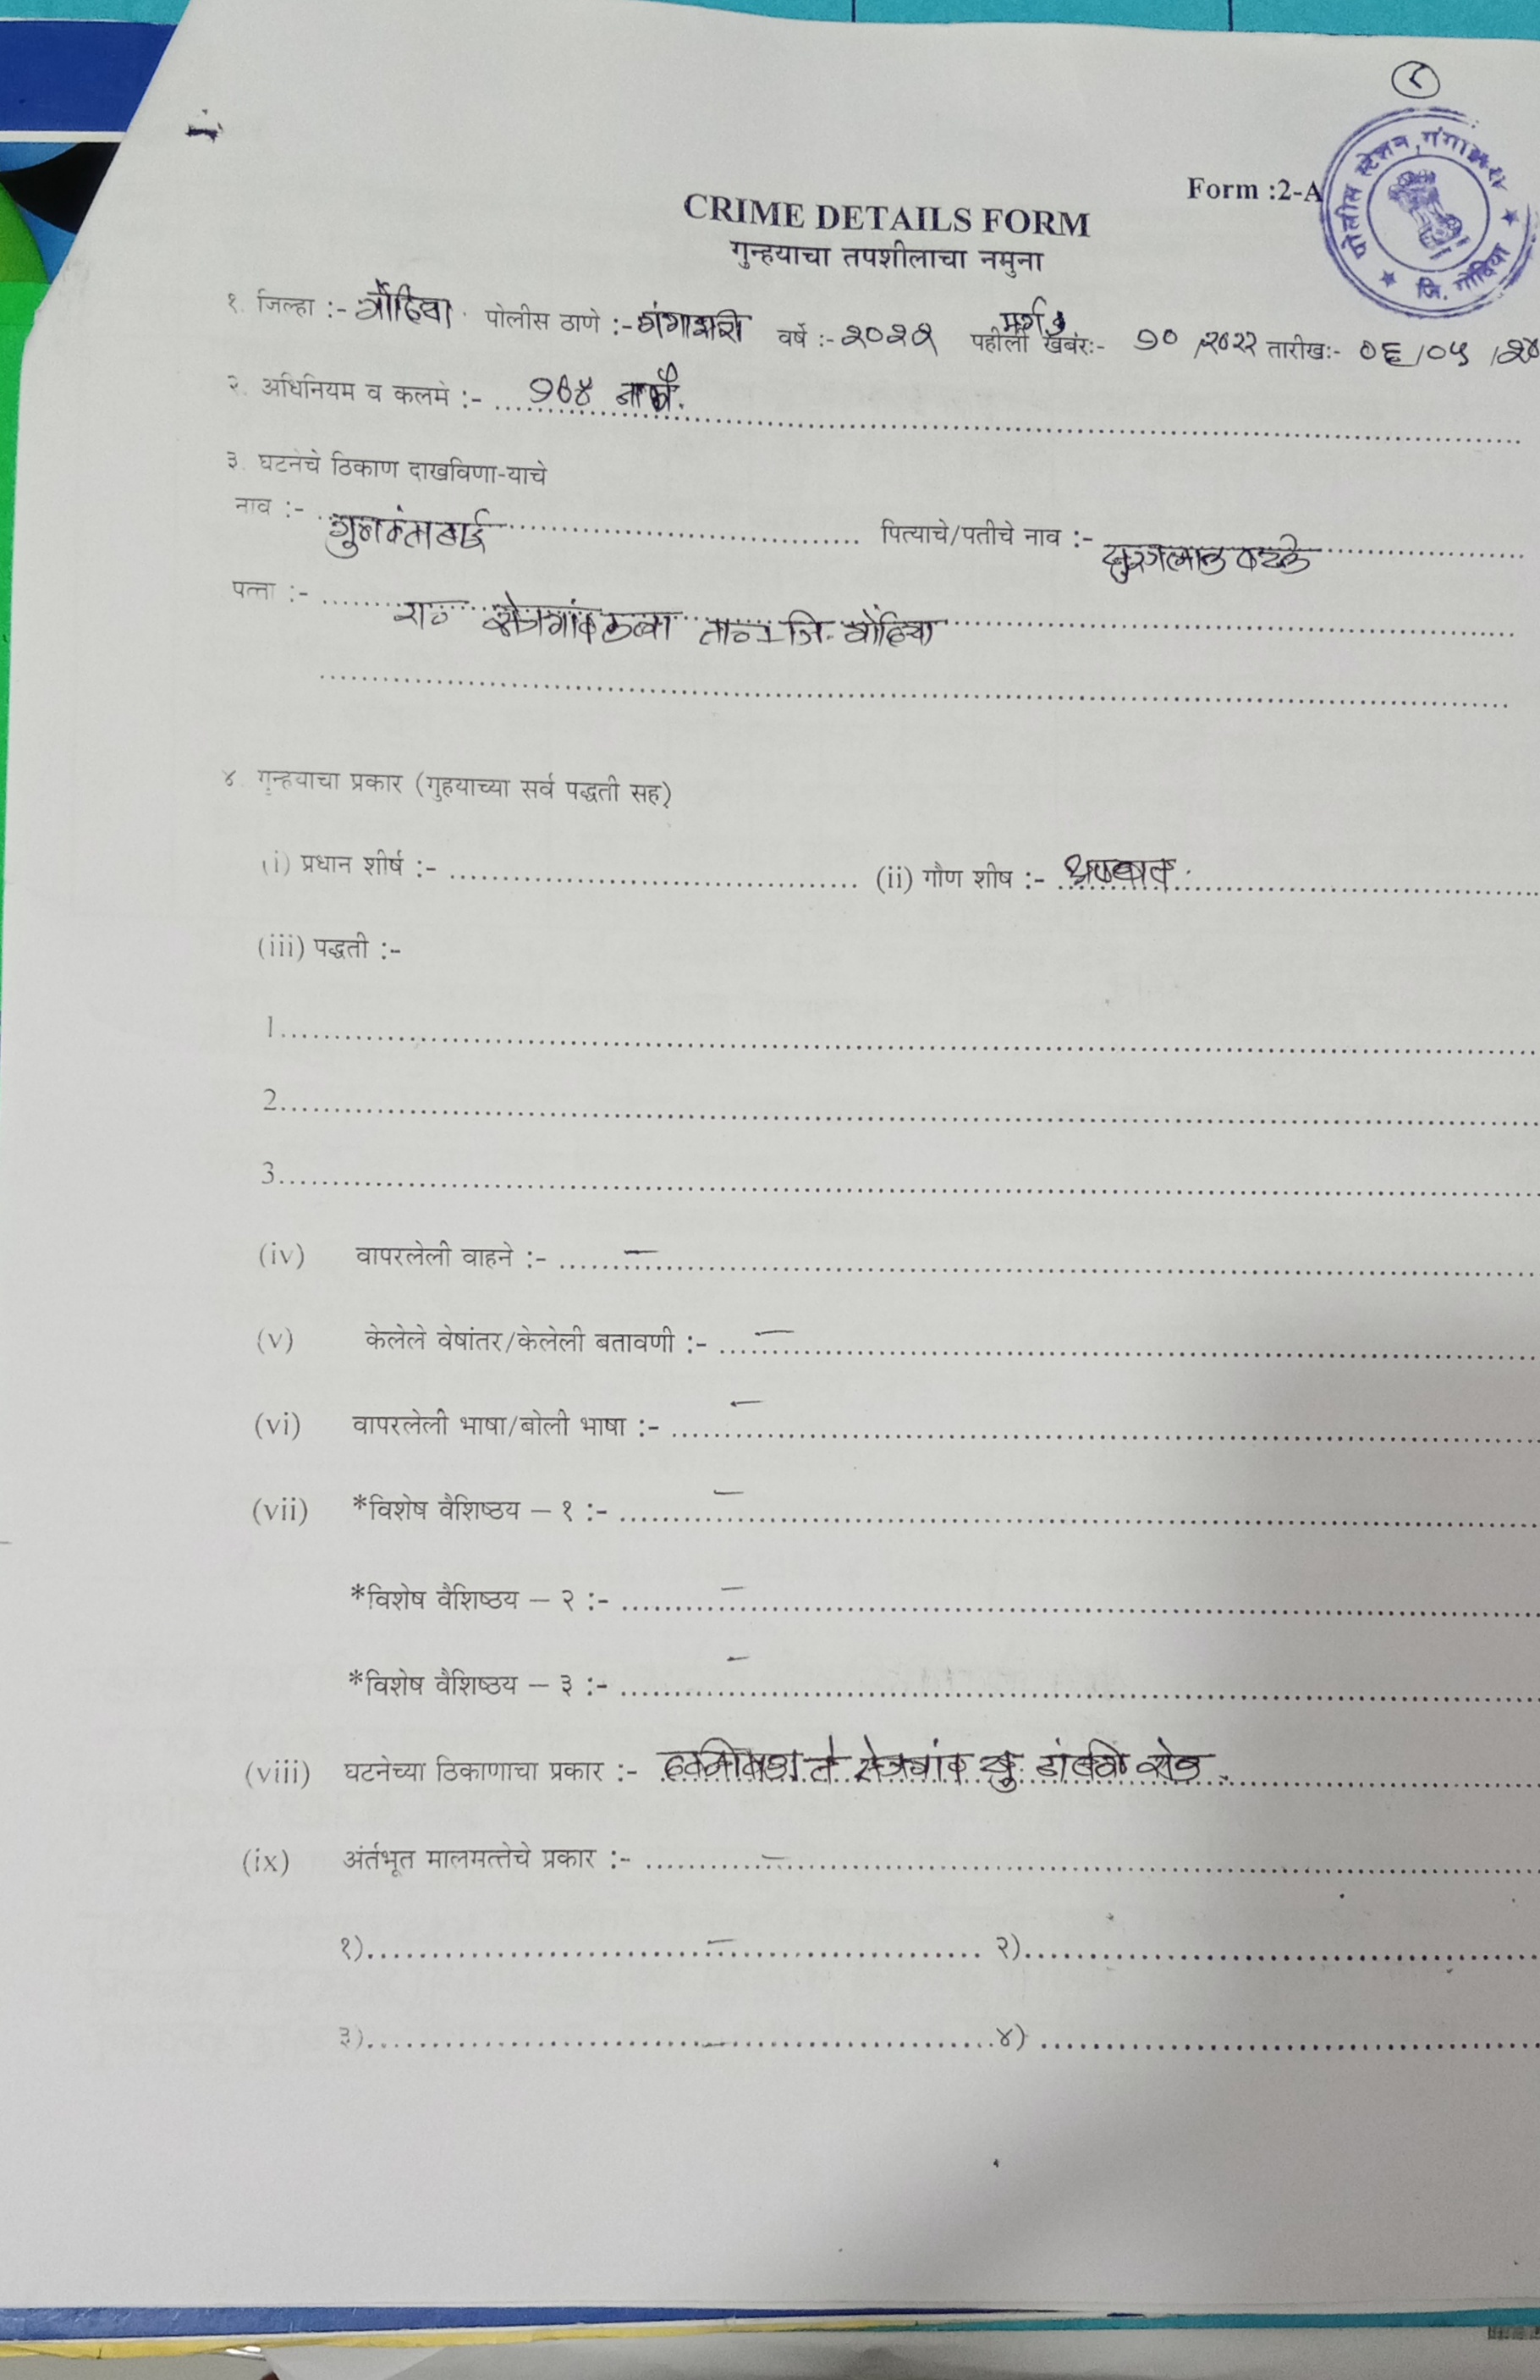 Form :2-A
पोलीस स्टेशन, गंगाझरी
जि. गोंदिया
CRIME DETAILS FORM
गुन्हयाचा तपशीलाचा नमुना
१. जिल्हा :- गोंदिया. पोलीस ठाणे :- गंगाझरी वर्षे :- २०२२ पहीली खबर:- मर्ग १०/२०२२ तारीख:- ०६/०५/२०
२. अधिनियम व कलमे :- १७४ जाफौ.
३. घटनेचे ठिकाण दाखविणा-याचे
नाव :- पित्याचे/पतीचे नाव :- सुरजलाल
पत्ता :- रा० ता० जि. गोंदिया
४. गुन्हयाचा प्रकार (गुहयाच्या सर्व पद्धती सह)
(i) प्रधान शीर्ष :- (ii) गौण शीष :- अपघात.
(iii) पद्धती :-
1
2
3
(iv) वापरलेली वाहने :- –
(v) केलेले वेषांतर/केलेली बतावणी :- –
(vi) वापरलेली भाषा/बोली भाषा :- –
(vii) *विशेष वैशिष्ठय – १ :- –
*विशेष वैशिष्ठय – २ :- –
*विशेष वैशिष्ठय – ३ :- –
(viii) घटनेच्या ठिकाणाचा प्रकार :- ते खु. रोड.
(ix) अंर्तभूत मालमत्तेचे प्रकार :- –
१) – २)
३) – ४)